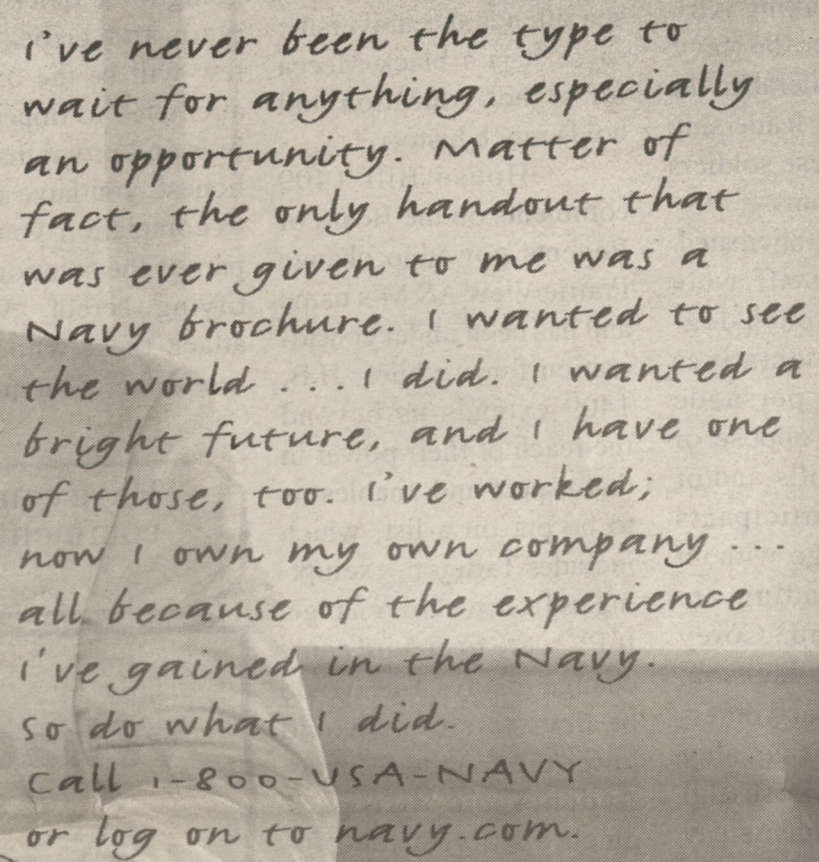 I've never been the type to
wait for anything, especially
an opportunity. Matter of
fact, the only handout that
was ever given to me was a
Navy brochure. I wanted to see
the world . . . I did. I wanted a
bright future, and I have one
of those, too. I've worked;
now I own my own company . . .
all because of the experience
I've gained in the Navy.
So do what I did.
Call 1-800-USA-NAVY
or log on to navy.com.